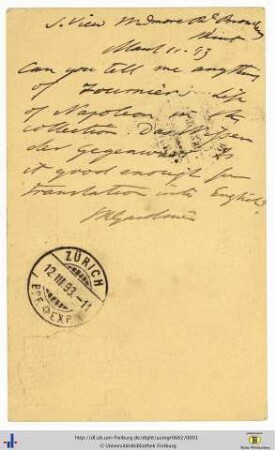 S. View Widmore Rd Bromley
Kent
March 11. 93
Can you tell me anything
of Fournier's Life
of Napoleon in the
collection Das Wissen
der Gegenwart Is
it good enough for
translation into English?
SRGardiner
ZÜRICH
12.III.93.-11
BRF.EXP.
http://dl.ub.uni-freiburg.de/diglit/autogr0662/0001
© Universitätsbibliothek Freiburg